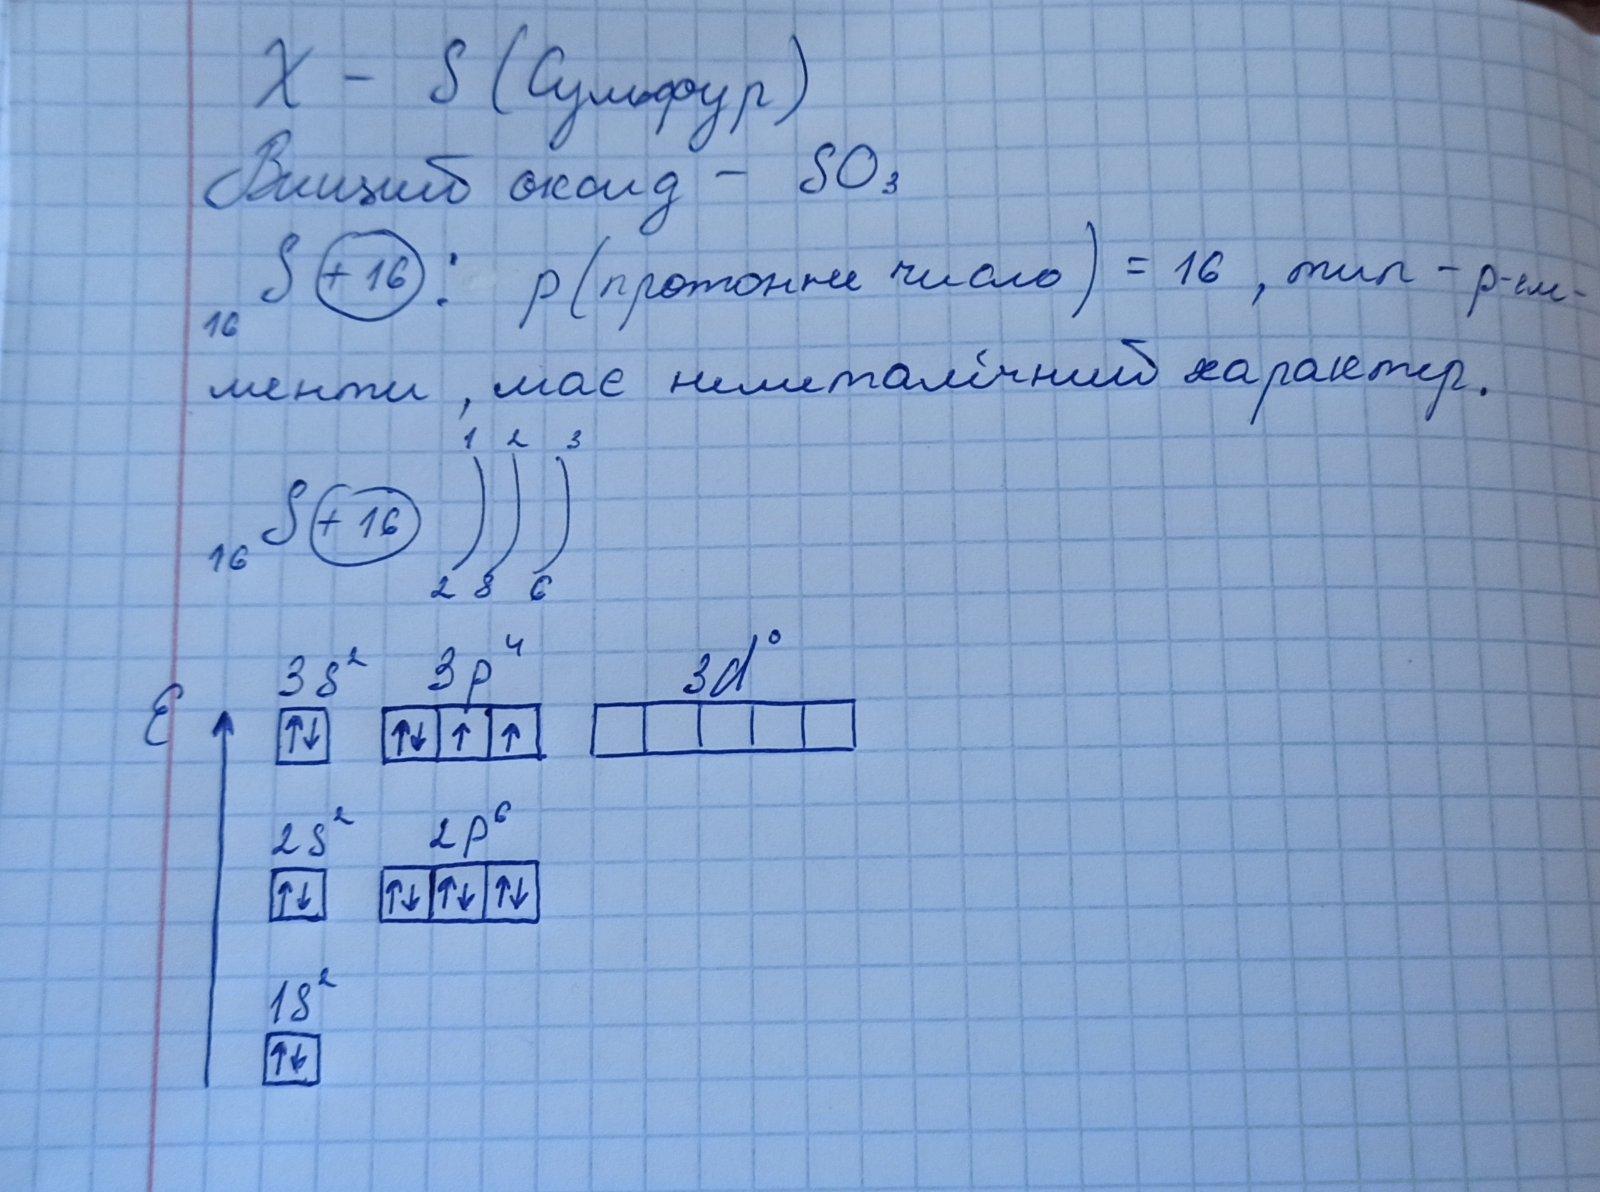 X - S (Сульфур)
Вищий оксид - SO₃
₁₆S (+16) : p (протонне число) = 16, тип - p-еле-
менти, має неметалічний характер.
1 2 3
₁₆S (+16)
2 8 6
3s² 3p⁴ 3d⁰
E ↑↓ ↑↓ ↑ ↑
2s² 2p⁶
↑↓ ↑↓ ↑↓ ↑↓
1s²
↑↓